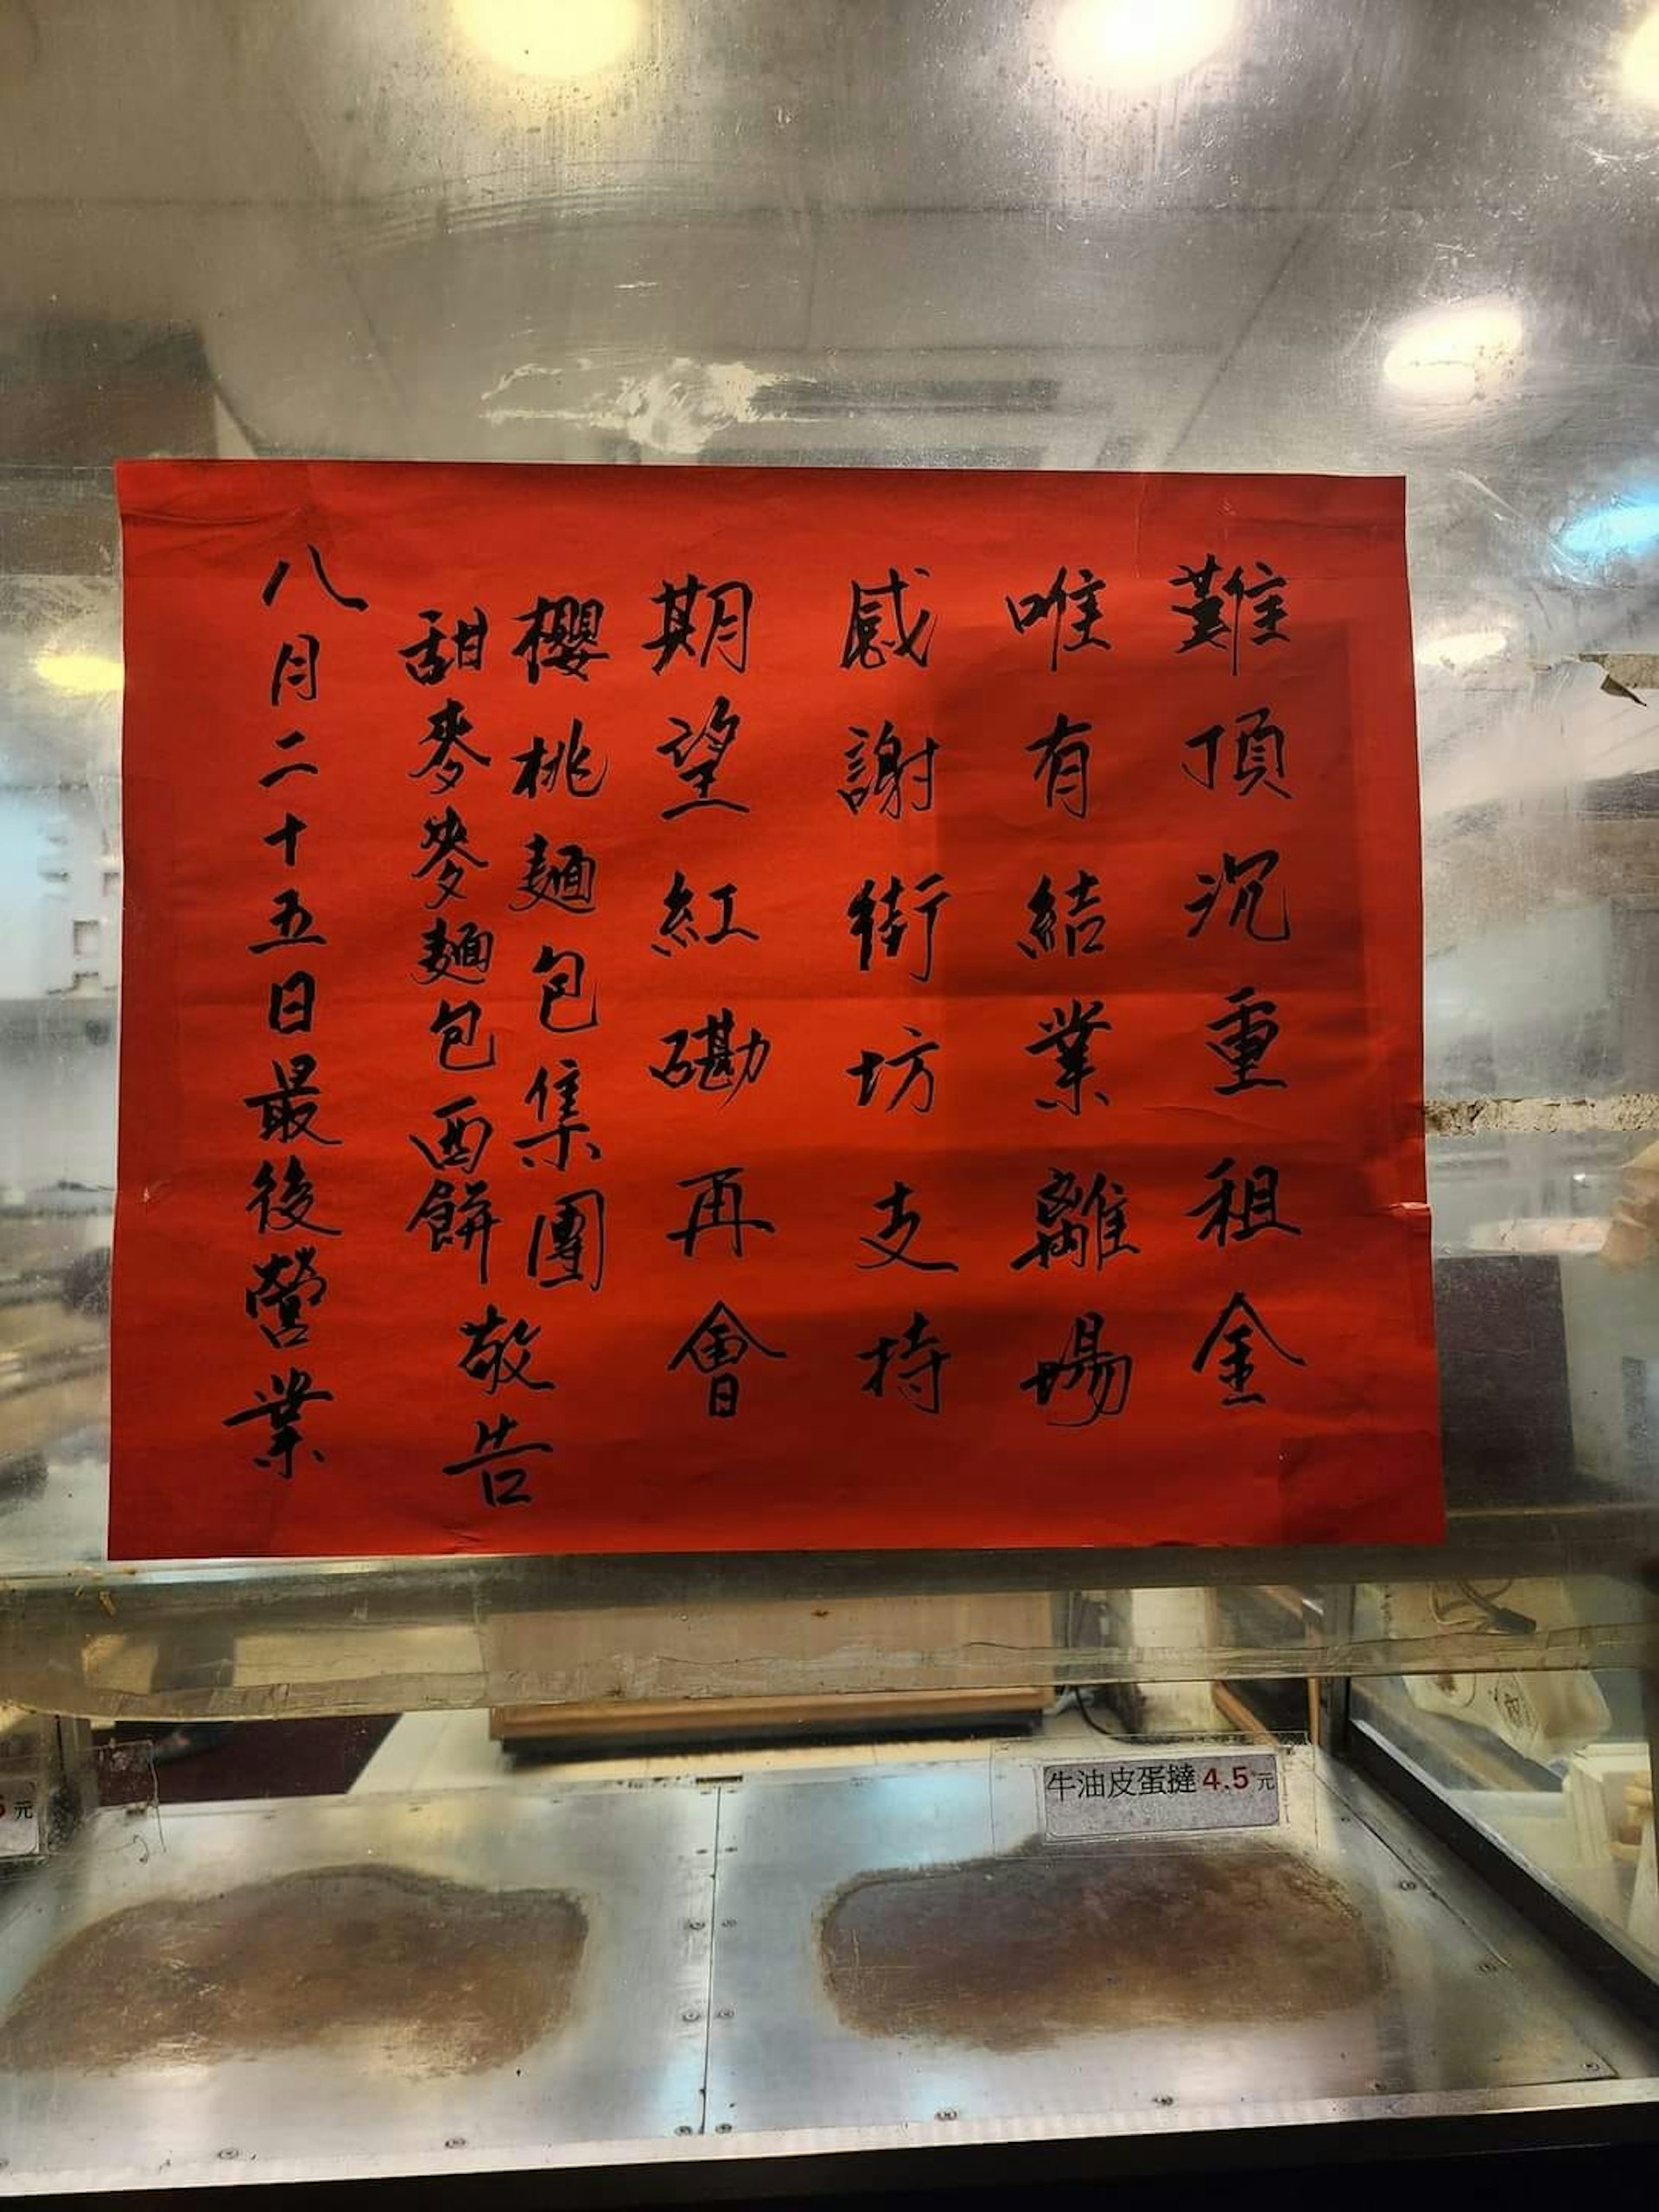 難頂沉重租金
唯有結業離場
感謝街坊支持
期望紅磡再會
櫻桃麵包集團
甜麥麥麵包西餅
敬告
八月二十五日最後營業
牛油皮蛋撻4.5元
元